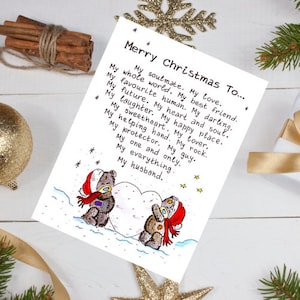 Merry Christmas To...
My soulmate. My love.
My whole world. My best friend.
My favourite human. My darling.
My future. My heart and soul.
My laughter. My happy place.
My sweetheart. My lover.
My helping hand. My rock.
My protector. My guy.
My one and only.
My everything.
My husband.